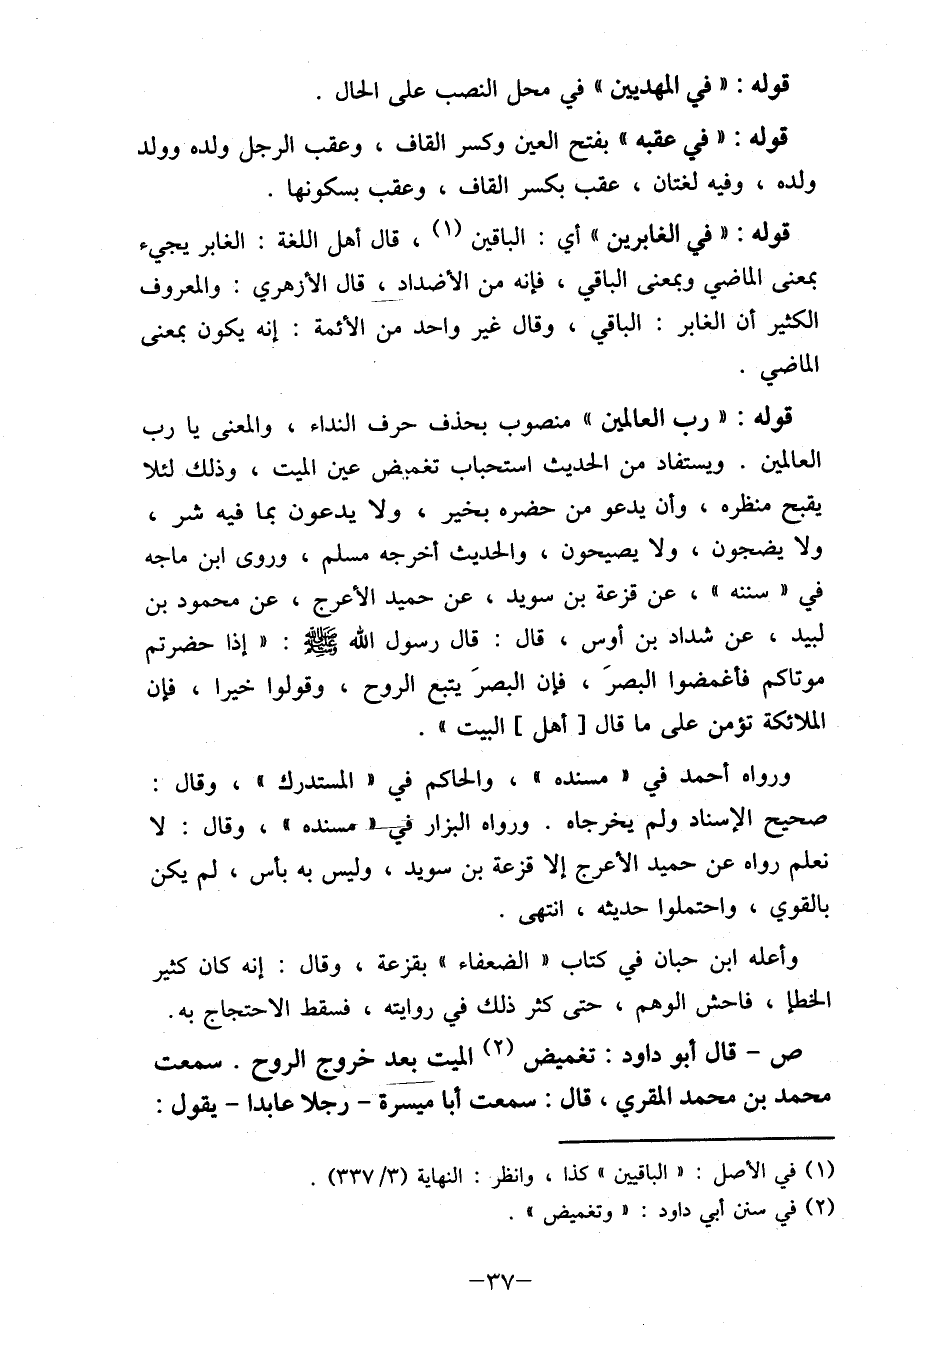 قوله : « في المهديين » في محل النصب على الحال .
قوله : « في عقبه » بفتح العين وكسر القاف ، وعقب الرجل ولده وولد
ولده ، وفيه لغتان ، عقب بكسر القاف ، وعقب بسكونها .
قوله : « في الغابرين » أي : الباقين (١) ، قال أهل اللغة : الغابر يجيء
بمعنى الماضي وبمعنى الباقي ، فإنه من الأضداد ، قال الأزهري : والمعروف
الكثير أن الغابر : الباقي ، وقال غير واحد من الأئمة : إنه يكون بمعنى
الماضي .
قوله : « رب العالمين » منصوب بحذف حرف النداء ، والمعنى يا رب
العالمين . ويستفاد من الحديث استحباب تغميض عين الميت ، وذلك لئلا
يقبح منظره ، وأن يدعو من حضره بخير ، ولا يدعون بما فيه شر ،
ولا يضجون ، ولا يصيحون ، والحديث أخرجه مسلم ، وروى ابن ماجه
في « سننه » ، عن قزعة بن سويد ، عن حميد الأعرج ، عن محمود بن
لبيد ، عن شداد بن أوس ، قال : قال رسول الله ﷺ : « إذا حضرتم
موتاكم فأغمضوا البصرَ ، فإن البصرَ يتبع الروح ، وقولوا خيرا ، فإن
الملائكة تؤمن على ما قال [ أهل ] البيت » .
ورواه أحمد في « مسنده » ، والحاكم في « المستدرك » ، وقال :
صحيح الإسناد ولم يخرجاه . ورواه البزار في « مسنده » ، وقال : لا
نعلم رواه عن حميد الأعرج إلا قزعة بن سويد ، وليس به بأس ، لم يكن
بالقوي ، واحتملوا حديثه ، انتهى .
وأعله ابن حبان في كتاب « الضعفاء » بقزعة ، وقال : إنه كان كثير
الخطإ ، فاحش الوهم ، حتى كثر ذلك في روايته ، فسقط الاحتجاج به.
ص – قال أبو داود : تغميض (٢) الميت بعد خروج الروح . سمعت
محمد بن محمد المقري ، قال : سمعت أبا ميسرة – رجلا عابدا – يقول :
(١) في الأصل : « الباقيين » كذا ، وانظر : النهاية (٣/ ٣٣٧) .
(٢) في سنن أبي داود : « وتغميض » .
–٣٧–